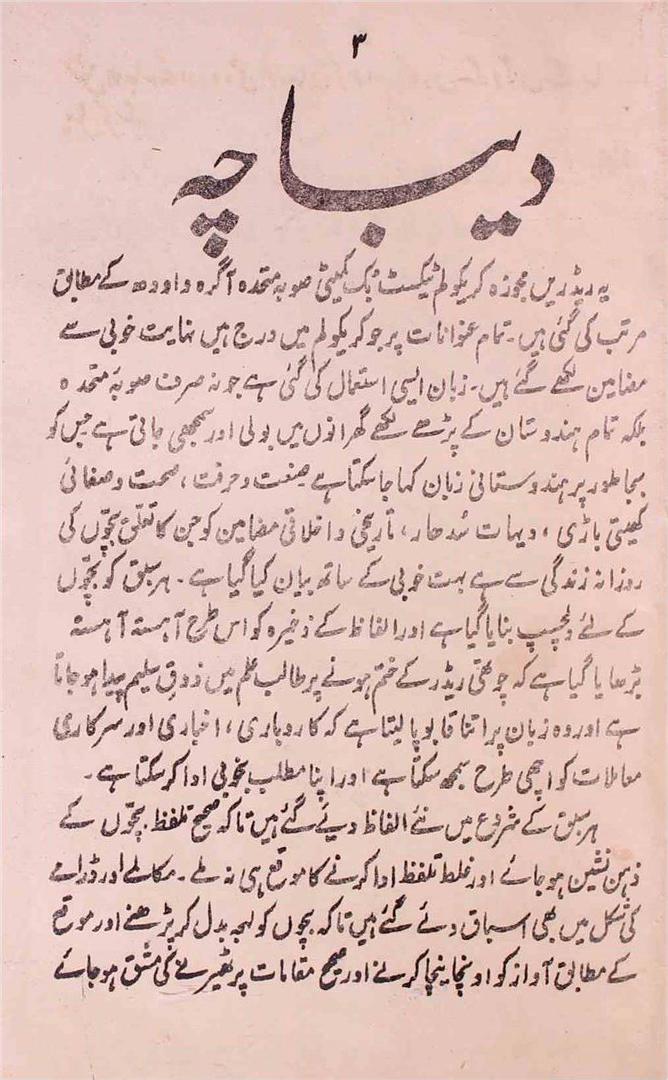 ۳
دیباچہ
یہ ریڈریں مجوزہ کریکولم ٹیکسٹ بک کمیٹی صوبہ متحدہ آگرہ و اودھ کے مطابق
مرتب کی گئی ہیں۔ تمام عنوانات پر جو کریکولم میں درج ہیں نہایت خوبی سے
مضامین لکھے گئے ہیں۔ زبان ایسی استعمال کی گئی ہے جو نہ صرف صوبۂ متحدہ
بلکہ تمام ہندوستان کے پڑھے لکھے گھرانوں میں بولی اور سمجھی جاتی ہے جس کو
بجا طور پر ہندوستانی زبان کہا جا سکتا ہے صنعت و حرفت، صحت و صفائی
کھیتی باڑی، دیہات سُدھار، تاریخی و اخلاقی مضامین کو جن کا تعلق بچّوں کی
روزانہ زندگی سے ہے بہت خوبی کے ساتھ بیان کیا گیا ہے۔ ہر سبق کو بچّوں
کے لئے دلچسپ بنایا گیا ہے اور الفاظ کے ذخیرہ کو اس طرح آہستہ آہستہ
بڑھایا گیا ہے کہ چوتھی ریڈر کے ختم ہونے پر طالب علم میں ذوقِ سلیم پیدا ہو جاتا
ہے اور وہ زبان پر اتنا قابو پا لیتا ہے کہ کاروباری، اخباری اور سرکاری
معاملات کو اچھی طرح سمجھ سکتا ہے اور اپنا مطلب بخوبی ادا کر سکتا ہے۔
ہر سبق کے شروع میں نئے الفاظ دیئے گئے ہیں تاکہ صحیح تلفظ بچّوں کے
ذہن نشین ہو جائے اور غلط تلفظ ادا کرنے کا موقع ہی نہ ملے۔ مکالمے اور ڈرامے
کی شکل میں بھی اسباق دئے گئے ہیں تاکہ بچوں کو لہجہ بدل کر پڑھنے اور موقع
کے مطابق آواز کو اونچا نیچا کرنے اور صحیح مقامات پر ٹھیرنے کی مشق ہو جائے